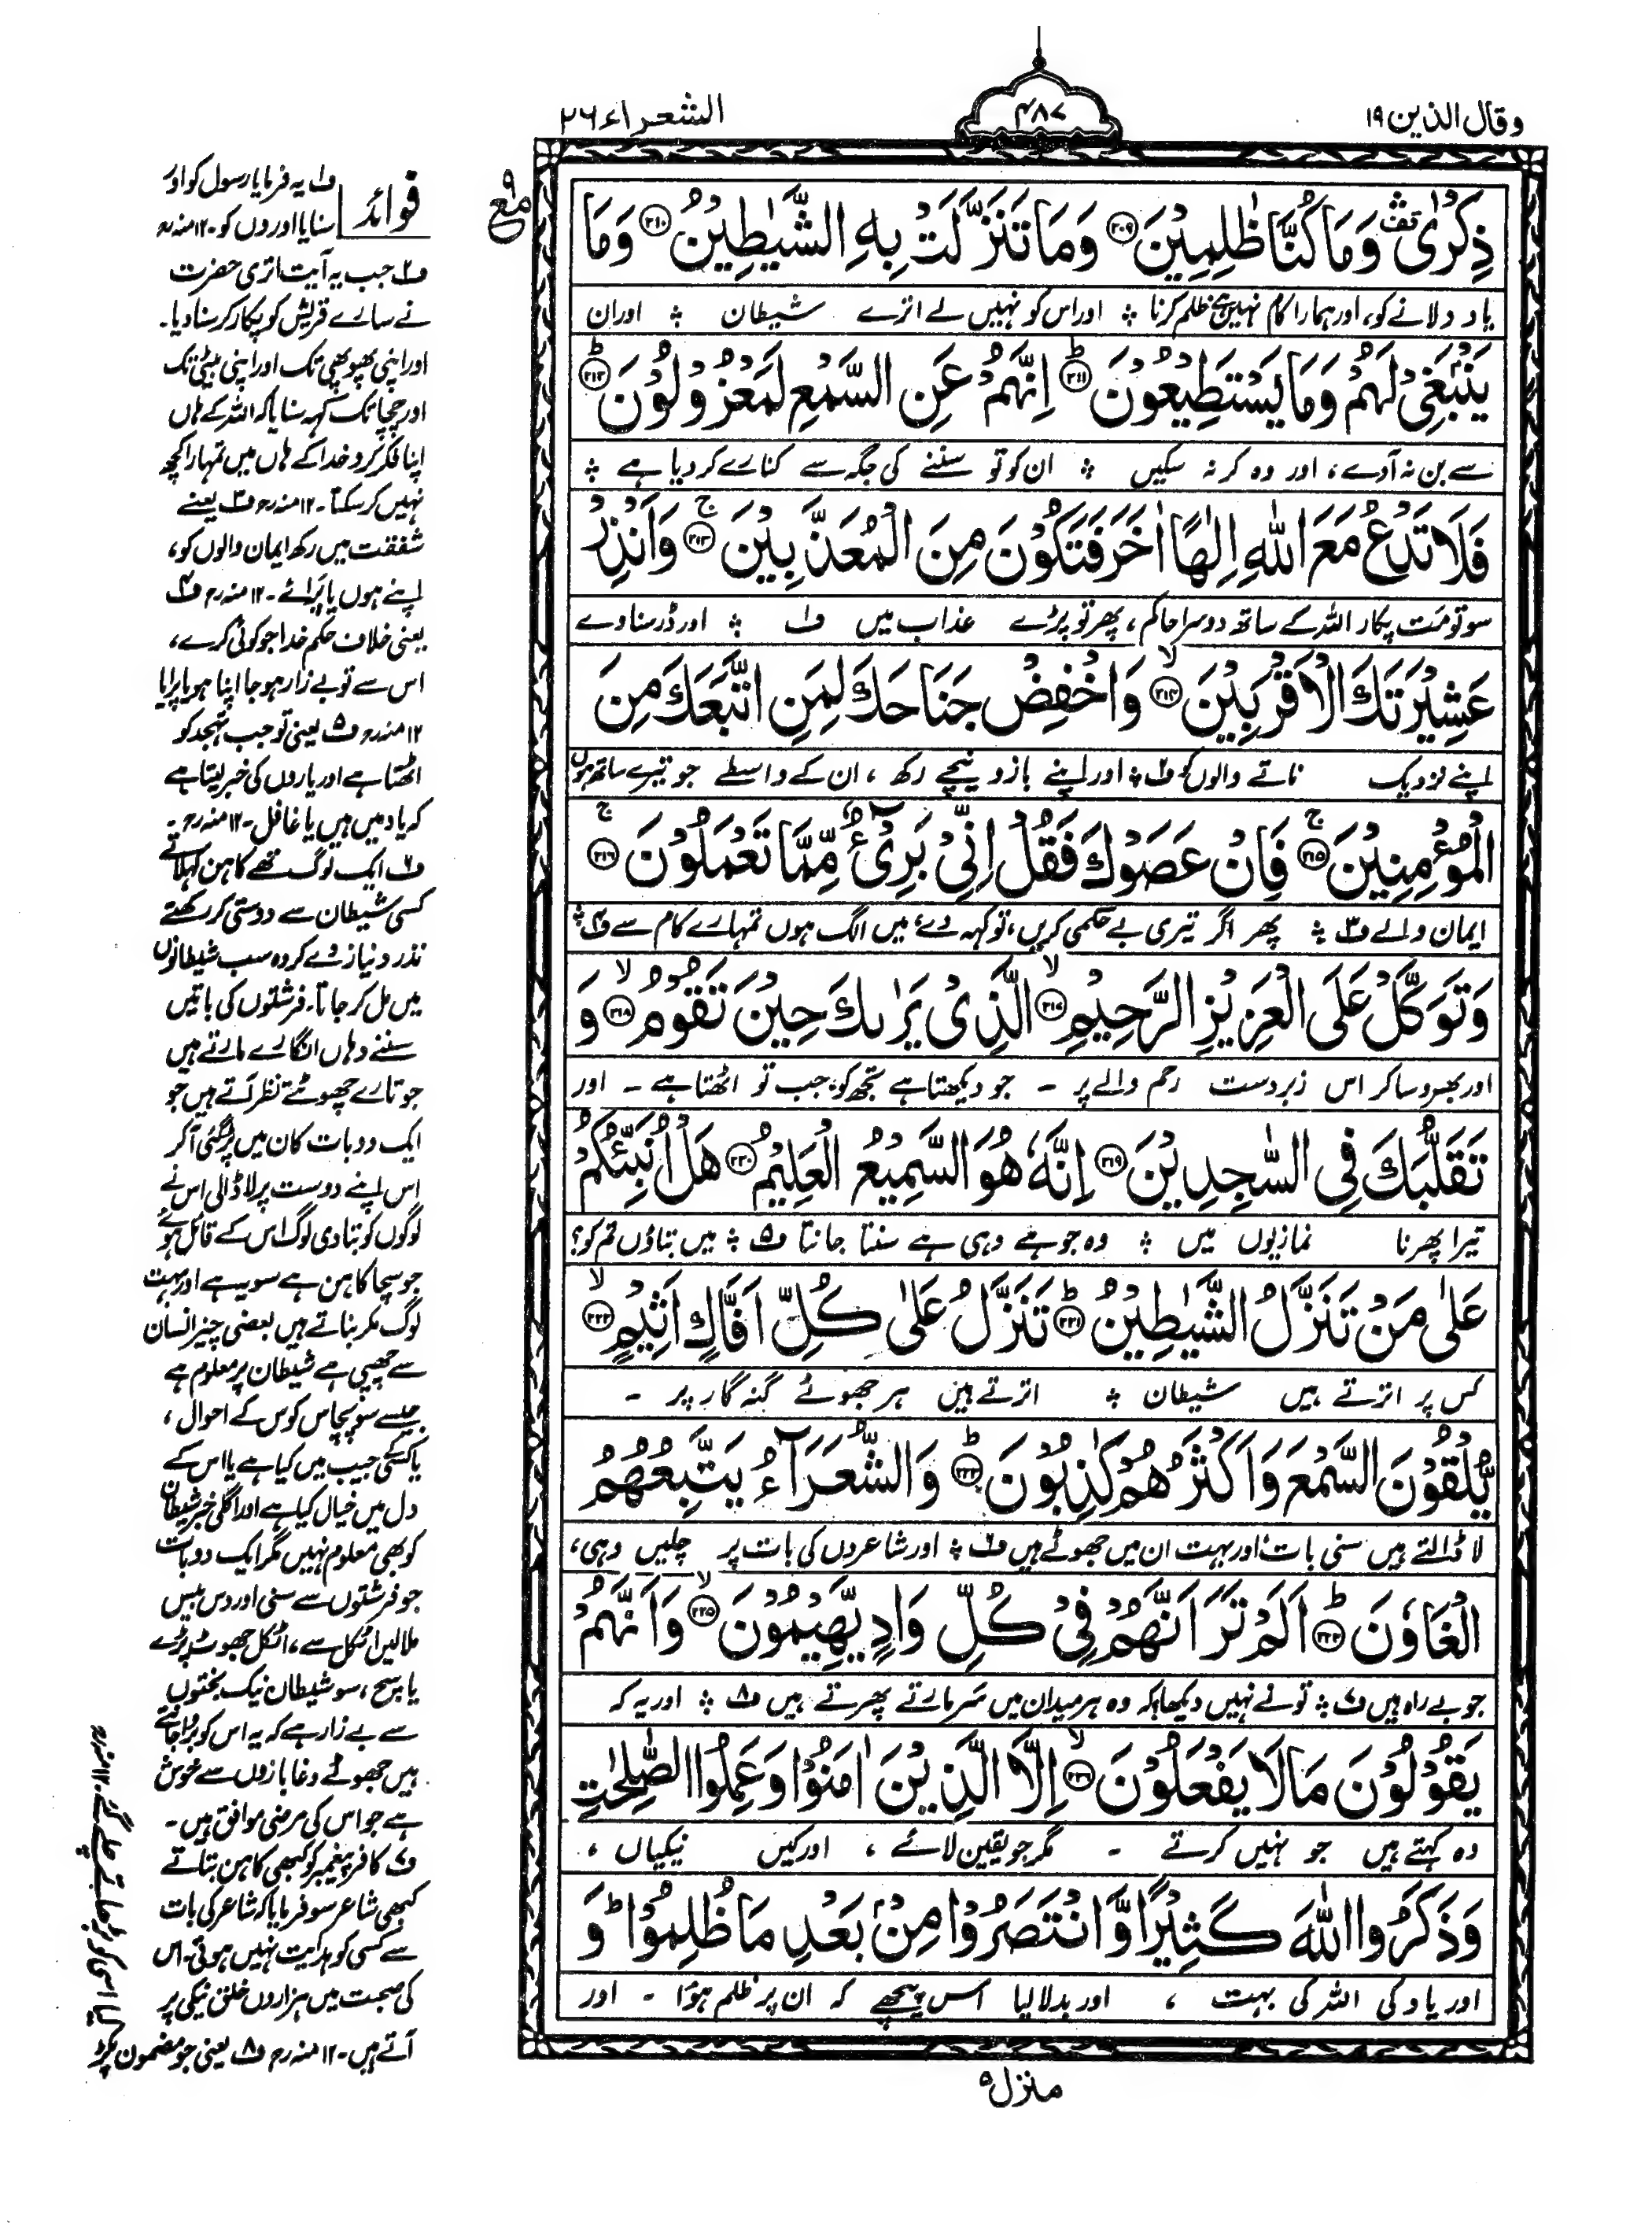 وقال الذين ١٩
۴۸۷
الشعراء ٢٦
ذِكْرٰى ۛ وَمَا كُنَّا ظٰلِمِيْنَ ﴿۲۰۹﴾ وَمَا تَنَزَّلَتْ بِهِ الشَّيٰطِيْنُ ﴿۲۱۰﴾ وَمَا
یاد دلانے کو، اور ہمارا کام نہیں ہے ظلم کرنا ؞ اور اس کو نہیں لے اترے شیطان ؞ اور ان
يَنْۢبَغِيْ لَهُمْ وَمَا يَسْتَطِيْعُوْنَ ﴿۲۱۱﴾ اِنَّهُمْ عَنِ السَّمْعِ لَمَعْزُوْلُوْنَ ﴿۲۱۲﴾
سے بن نہ آوے، اور وہ کر نہ سکیں ؞ ان کو تو سننے کی جگہ سے کنارے کر دیا ہے ؞
فَلَا تَدْعُ مَعَ اللّٰهِ اِلٰهًا اٰخَرَ فَتَكُوْنَ مِنَ الْمُعَذَّبِيْنَ ﴿۲۱۳﴾ وَاَنْذِرْ
سو تو مت پکار اللہ کے ساتھ دوسرا حاکم، پھر تو پڑے عذاب میں ف۱ ؞ اور ڈر سنا دے
عَشِيْرَتَكَ الْاَقْرَبِيْنَ ﴿۲۱۴﴾ وَاخْفِضْ جَنَاحَكَ لِمَنِ اتَّبَعَكَ مِنَ
اپنے نزدیک ناتے والوں کو ف۲ ؞ اور اپنے بازو نیچے رکھ، ان کے واسطے جو تیرے ساتھ ہوں
الْمُؤْمِنِيْنَ ﴿۲۱۵﴾ فَاِنْ عَصَوْكَ فَقُلْ اِنِّيْ بَرِيْٓءٌ مِّمَّا تَعْمَلُوْنَ ﴿۲۱۶﴾
ایمان والے ف۳ ؞ پھر اگر تیری بے حکمی کریں، تو کہہ دے، میں الگ ہوں تمہارے کام سے ف۴ ؞
وَتَوَكَّلْ عَلَى الْعَزِيْزِ الرَّحِيْمِ ﴿۲۱۷﴾ الَّذِيْ يَرٰىكَ حِيْنَ تَقُوْمُ ﴿۲۱۸﴾ وَ
اور بھروسا کر اس زبردست رحم والے پر ۔ جو دیکھتا ہے تجھ کو، جب تو اٹھتا ہے ۔ اور
تَقَلُّبَكَ فِي السّٰجِدِيْنَ ﴿۲۱۹﴾ اِنَّهٗ هُوَ السَّمِيْعُ الْعَلِيْمُ ﴿۲۲۰﴾ هَلْ اُنَبِّئُكُمْ
تیرا پھرنا نمازیوں میں ؞ وہ جو ہے وہی ہے سنتا جانتا ف۵ ؞ میں بتاؤں تم کو؟
عَلٰى مَنْ تَنَزَّلُ الشَّيٰطِيْنُ ﴿۲۲۱﴾ تَنَزَّلُ عَلٰى كُلِّ اَفَّاكٍ اَثِيْمٍ ﴿۲۲۲﴾
کس پر اترتے ہیں شیطان ؞ اترتے ہیں ہر جھوٹے گنہ گار پر ۔
يُّلْقُوْنَ السَّمْعَ وَاَكْثَرُهُمْ كٰذِبُوْنَ ﴿۲۲۳﴾ وَالشُّعَرَآءُ يَتَّبِعُهُمُ
لا ڈالتے ہیں سنی بات، اور بہت ان میں جھوٹے ہیں ف۶ ؞ اور شاعروں کی بات پر چلیں وہی،
الْغَاوٗنَ ﴿۲۲۴﴾ اَلَمْ تَرَ اَنَّهُمْ فِيْ كُلِّ وَادٍ يَّهِيْمُوْنَ ﴿۲۲۵﴾ وَاَنَّهُمْ
جو بے راہ ہیں ف۷ ؞ تو نے نہیں دیکھا، کہ وہ ہر میدان میں سر مارتے پھرتے ہیں ف۸ ؞ اور یہ کہ
يَقُوْلُوْنَ مَا لَا يَفْعَلُوْنَ ﴿۲۲۶﴾ اِلَّا الَّذِيْنَ اٰمَنُوْا وَعَمِلُوا الصّٰلِحٰتِ
وہ کہتے ہیں جو نہیں کرتے ۔ مگر جو یقین لائے، اور کیں نیکیاں،
وَذَكَرُوا اللّٰهَ كَثِيْرًا وَّانْتَصَرُوْا مِنْۢ بَعْدِ مَا ظُلِمُوْا ؕ وَ
اور یاد کی اللہ کی بہت ، اور بدلا لیا اس پیچھے کہ ان پر ظلم ہوا ۔ اور
منزل ۵
فوائد
ف۱ یہ فرمایا رسول کو اور
سنایا اوروں کو ۔ ۱۲ منہ رح
ف۲ جب یہ آیت اتری حضرت
نے سارے قریش کو پکار کر سنا دیا ۔
اور اپنی پھوپھی تک اور اپنی بیٹی تک
اور چچا تک کہہ سنایا کہ اللہ کے ہاں
اپنا فکر کرو خدا کے ہاں میں تمہارا کچھ
نہیں کر سکتا ۔ ۱۲ منہ رح ف۳ یعنے
شفقت میں رکھ ایمان والوں کو،
اپنے ہوں یا پرائے ۔ ۱۲ منہ رح ف۴
یعنی خلاف حکم خدا جو کوئی کرے،
اس سے تو بے زار ہو جا اپنا ہو یا پرایا
۱۲ منہ رح ف۵ یعنی تو جب تہجد کو
اٹھتا ہے اور یاروں کی خبر لیتا ہے
کہ یاد میں ہیں یا غافل ۔ ۱۲ منہ رح ۔
ف۶ ایک لوگ تھے کاہن کہلاتے
کسی شیطان سے دوستی کر رکھتے
نذر و نیاز دے کر وہ سب شیطانوں
میں مل کر جاتا ۔ فرشتوں کی باتیں
سننے وہاں انگارے مارتے ہیں
جو تارے چھوٹتے نظر آتے ہیں جو
ایک دو بات کان میں پڑ گئی آ کر
اس اپنے دوست پر لا ڈالی اس نے
لوگوں کو بتا دی لوگ اس کے قائل ہوئے
جو سچا کاہن ہے سو یہ ہے اور بہت
لوگ مکر بناتے ہیں بعضی چیز انسان
سے چھپی ہے شیطان پر معلوم ہے
جیسے سو پچاس کوس کے احوال،
یا کسی کی جیب میں کیا ہے یا اس کے
دل میں خیال کیا ہے اور اگلی خبر شیطان
کو بھی معلوم نہیں مگر ایک دو بات
جو فرشتوں سے سنی اور دس بیس
ملا لیں اٹکل سے، اٹکل جھوٹ پڑے
یا سچ، سو شیطان نیک بختوں
سے بے زار ہے کہ یہ اس کو برا جانتے
ہیں جھوٹے دغا بازوں سے خوش
ہے جو اس کی مرضی موافق ہیں ۔
ف۷ کافر پیغمبر کو کبھی کاہن بتاتے
کبھی شاعر سو فرمایا کہ شاعر کی بات
سے کسی کو ہدایت نہیں ہوتی ۔ اس
کی صحبت میں ہزاروں خلق نیکی پر
آتے ہیں ۔ ۱۲ منہ رح ف۸ یعنی جو مضمون پکڑ
لیا اسی کو بڑھاتے چلے گئے ۔ ۱۲ منہ رح